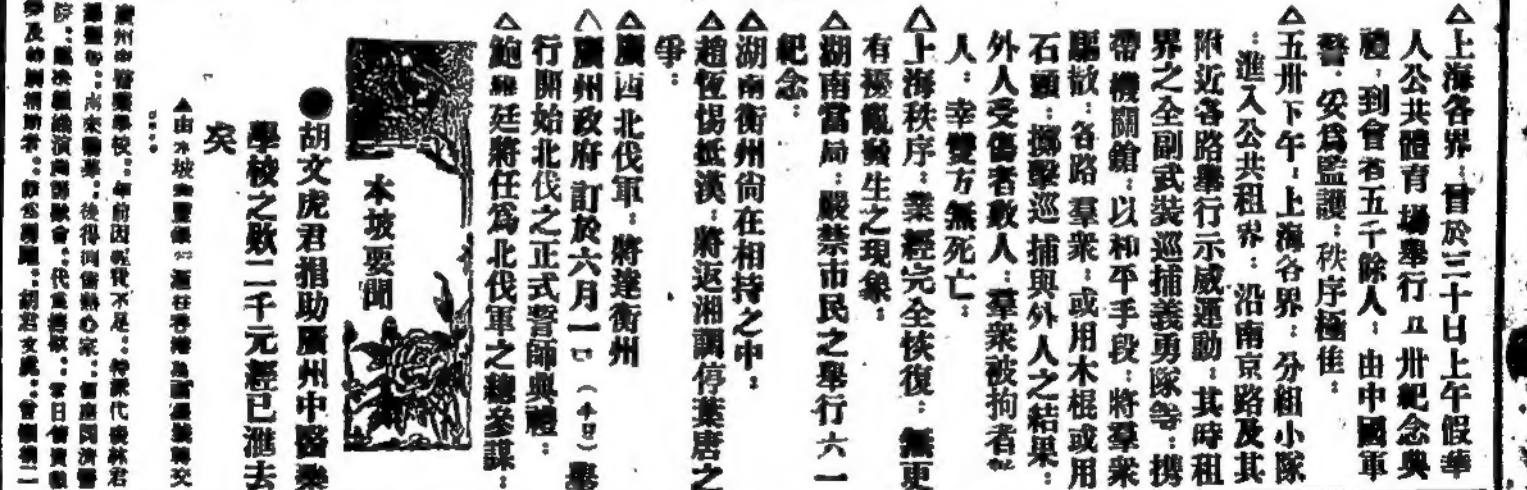 △上海各界：曾於三十日上午假華
人公共體育場舉行五卅紀念典
禮：到會者五千餘人：由中國軍
警：妥爲監護：秩序極佳：
△五卅下午：上海各界：分組小隊
：進入公共租界：沿南京路及其
附近各路舉行示威運動：其時租
界之全副武裝巡捕義勇隊等：携
帶機關鎗：以和平手段：將羣衆
驅散：各路羣衆：或用木棍或用
石頭：擲擊巡捕與外人之結果：
外人受傷者數人：羣衆被拘者
人：幸雙方無死亡：
△上海秩序：業經完全恢復：無更
有擾亂發生之現象：
△湖南當局：嚴禁市民之舉行六一
紀念：
△湖南衡州尙在相持之中：
△趙恆惕抵漢：將返湘調停葉唐之
爭：
△廣西北伐軍：將達衡州
△廣州政府訂於六月一日（本日）舉
行開始北伐之正式誓師典禮：
△鮑羅廷將任爲北伐軍之總參謀：
本坡要聞
●胡文虎君捐助廣州中醫藥
學校之欵二千元經已滙去
矣
▲由本坡滙往香港轉交
廣州中醫藥學校：前因經費不足：特派代表林君
南來勸募：後得同僑熱心家：